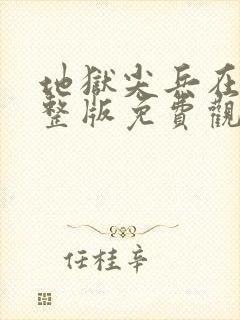 地獄尖兵在
整版免費觀
任桂辛